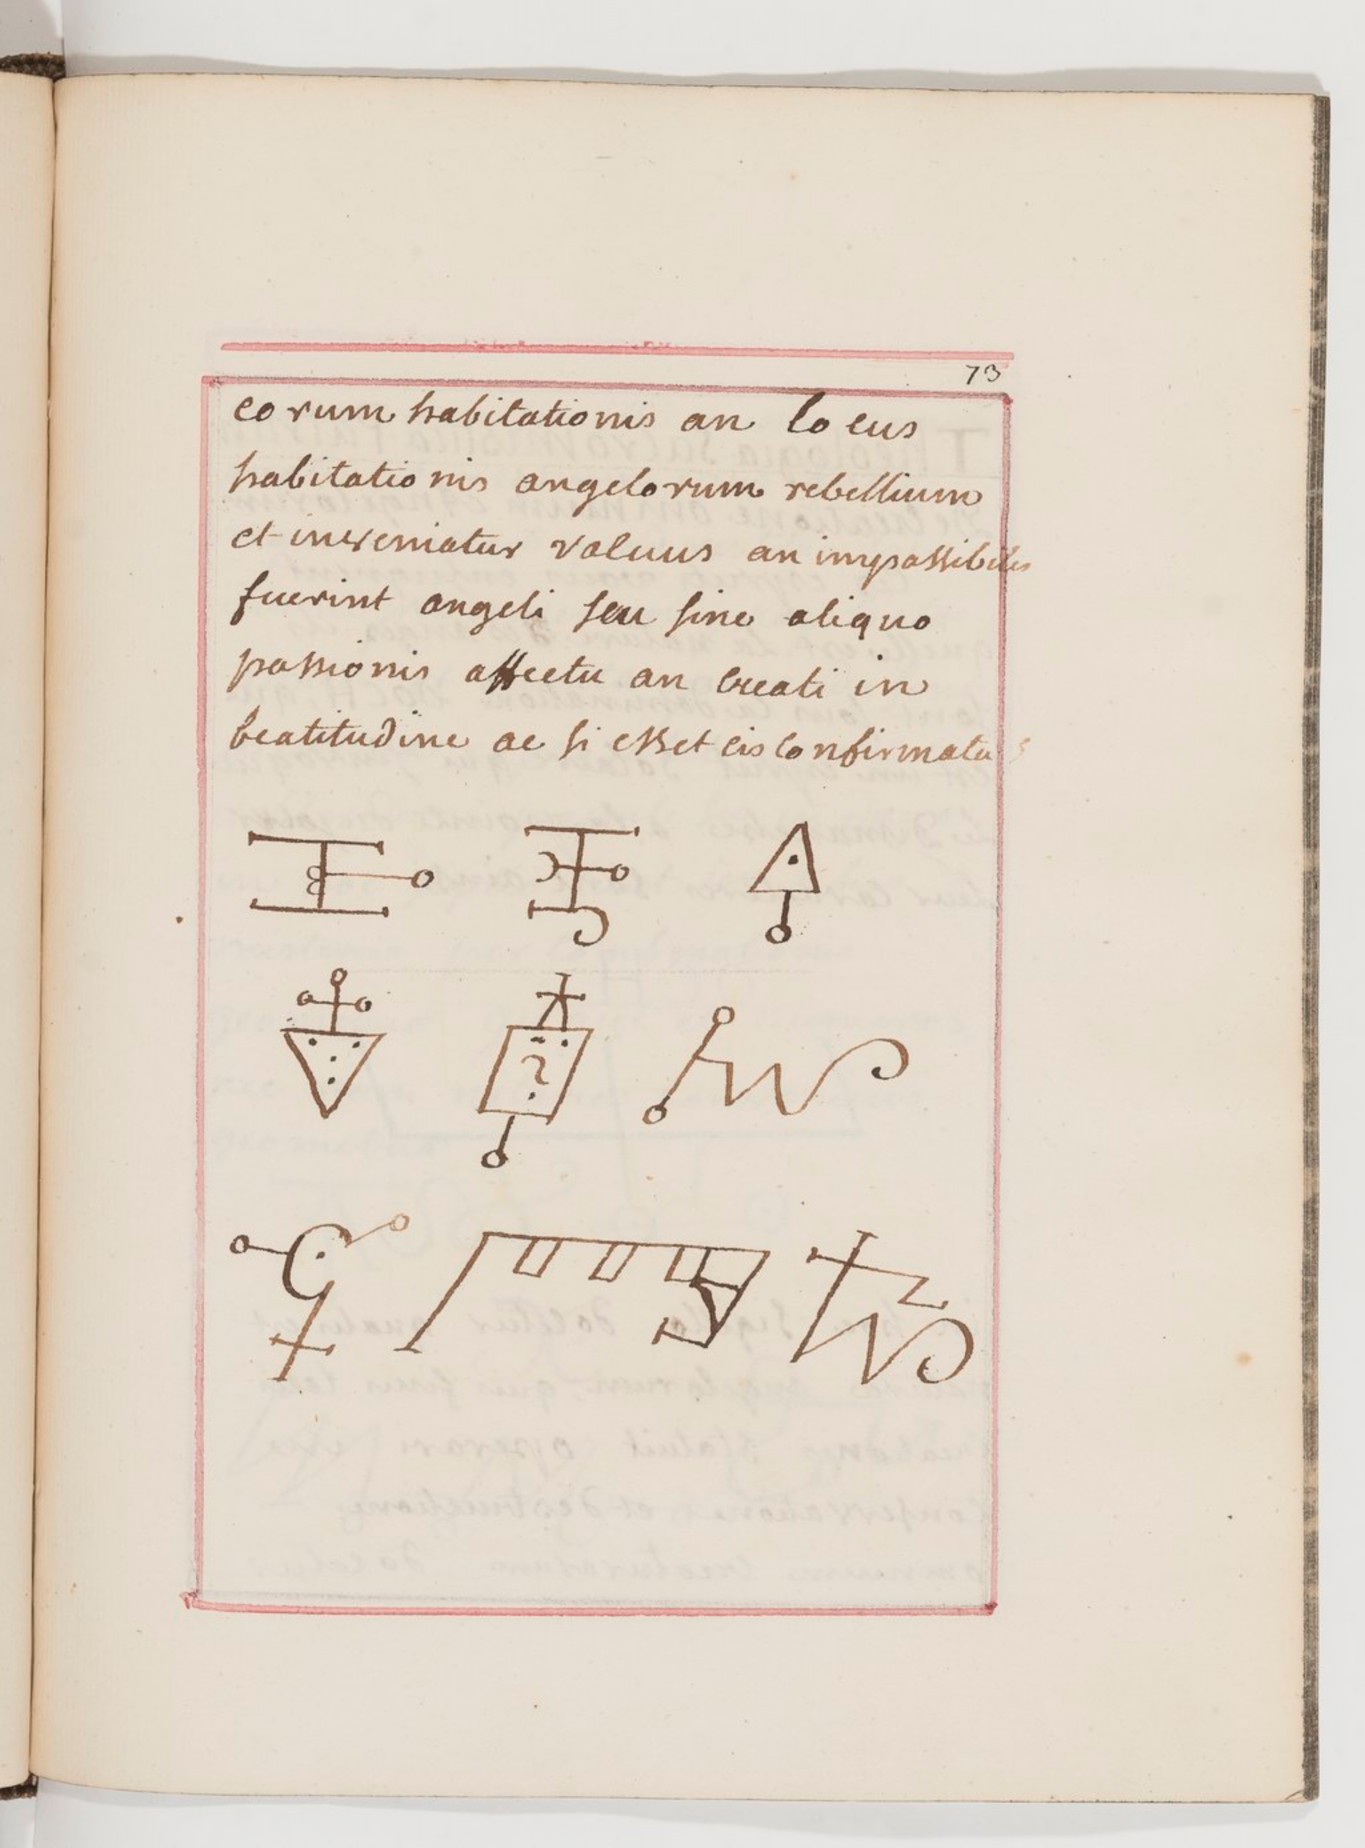 73
eorum habitationis an locus
habitationis angelorum rebellium
et inveniatur valuus an impassibiles
fuerint angeli seu sine aliquo
passionis affectu an creati in
beatitudine ac si esset eis confirmatus